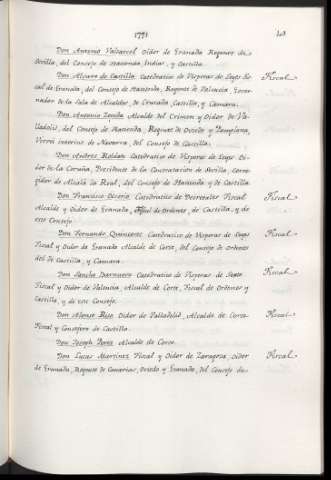 1771
Don Antonio Valcarcel Oidor de Granada Regente de
Sevilla, del Consejo de Hacienda, Indias, y Castilla.
Don Alvaro de Castilla Catedratico de Visperas de Leyes Fis Fiscal
cal de Granada, del Consejo de Hacienda, Regente de Valencia Gover
nador de la Sala de Alcaldes, de Granada, Castilla, y Camara.
Don Antonio Alcalde del Crimen y Oidor de Va-
lladolid, del Consejo de Hacienda, Regente de Oviedo y Pamplona,
Virrei interino de Navarra, del Consejo de Castilla.
Don Andres Roldan Catedratico de Visperas de Leyes Oi-
dor de la Coruña, Presidente de la Contratacion de Sevilla, corre-
gidor de Alcalá la Real, del Consejo de Hacienda y de Castilla.
Don Francisco Catedratico de Decretales Fiscal Fiscal
Alcalde y Oidor de Granada, Fiscal de Ordenes, de Castilla, y de
este Consejo.
Don Fernando Quincoces Catedratico de Visperas de Leyes Fiscal
Fiscal y Oidor de Granada Alcalde de Corte, del Consejo de Ordenes
del de Castilla, y Camara.
Don Sancho Barnuevo Catedratico de Visperas de Sexto Fiscal
Fiscal y Oidor de Valencia, Alcalde de Corte, Fiscal de Ordenes y
Castilla, y de este Consejo.
Don Alonso Rico Oidor de Valladolid, Alcalde de Corte Fiscal
Fiscal y Consejero de Castilla.
Don Joseph Perez Alcalde de Corte.
Don Lucas Martinez Fiscal y Oidor de Zaragoza, Oidor Fiscal
de Granada, Regente de Canarias, Oviedo y Granada, del Consejo de